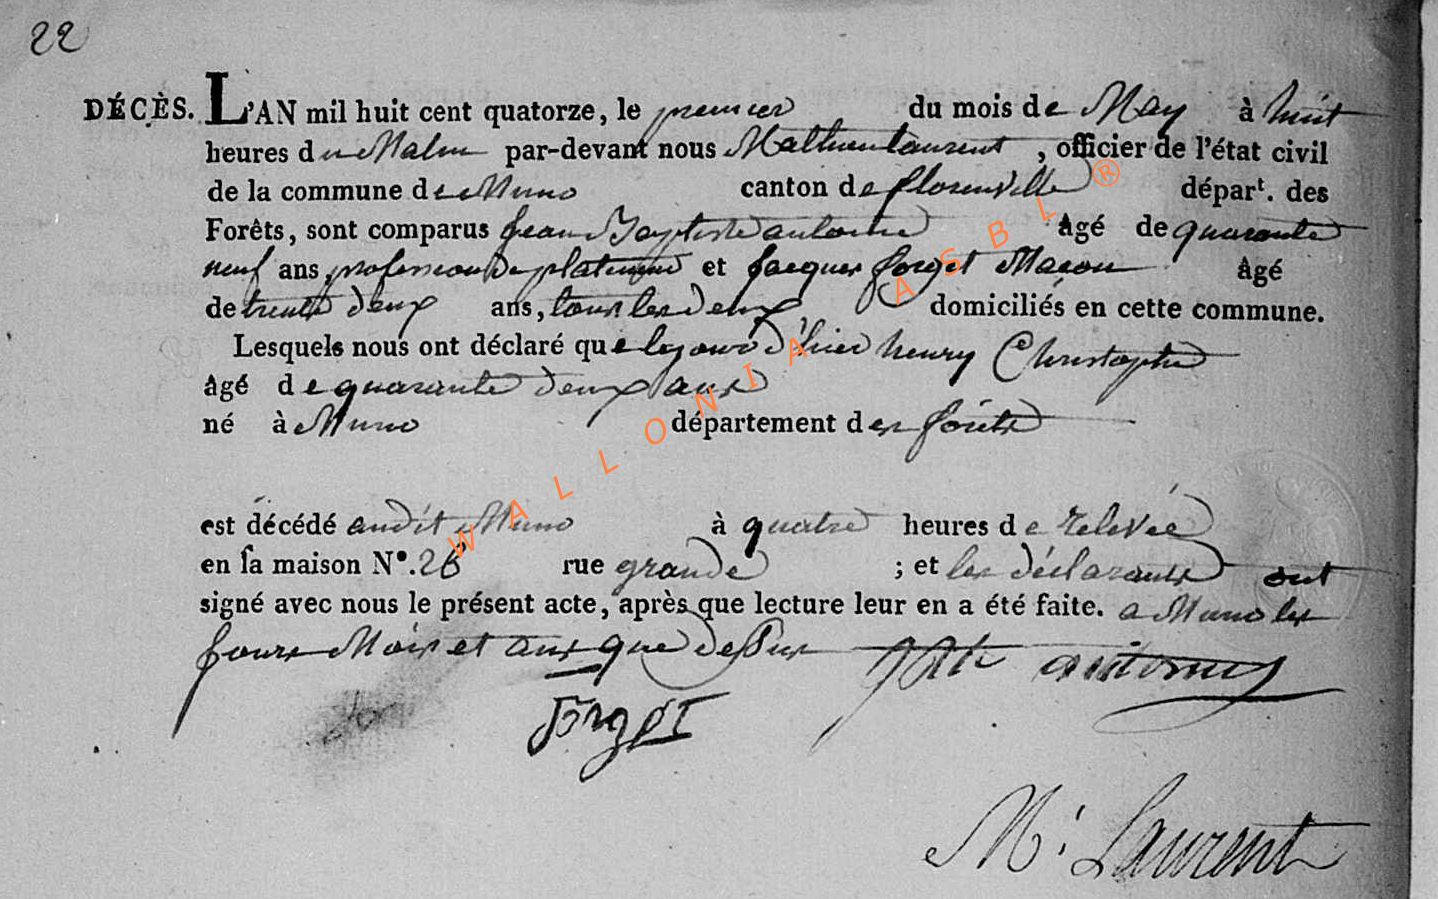 22
DÉCÈS. L'AN mil huit cent quatorze, le premier du mois de May à huit
heures du Matin par-devant nous Mathieu Laurent, officier de l'état civil
de la commune de Muno canton de florenville départ. des
Forêts, sont comparus Jean Baptiste antoine âgé de quarante
neuf ans, profession de et Jacques forget Macon âgé
de trente deux ans, tous les deux domiciliés en cette commune.
Lesquels nous ont déclaré que le jour d'hier henry Christophe
âgé de quarante deux ans
né à Muno département des forêts
est décédé audit Muno à quatre heures de relevée
en sa maison N°. 26 rue grande ; et les déclarants ont
signé avec nous le présent acte, après que lecture leur en a été faite. a Muno les
jours Mois et ans que dessus
forget
M. Laurent
WALLONIA ASBL ®